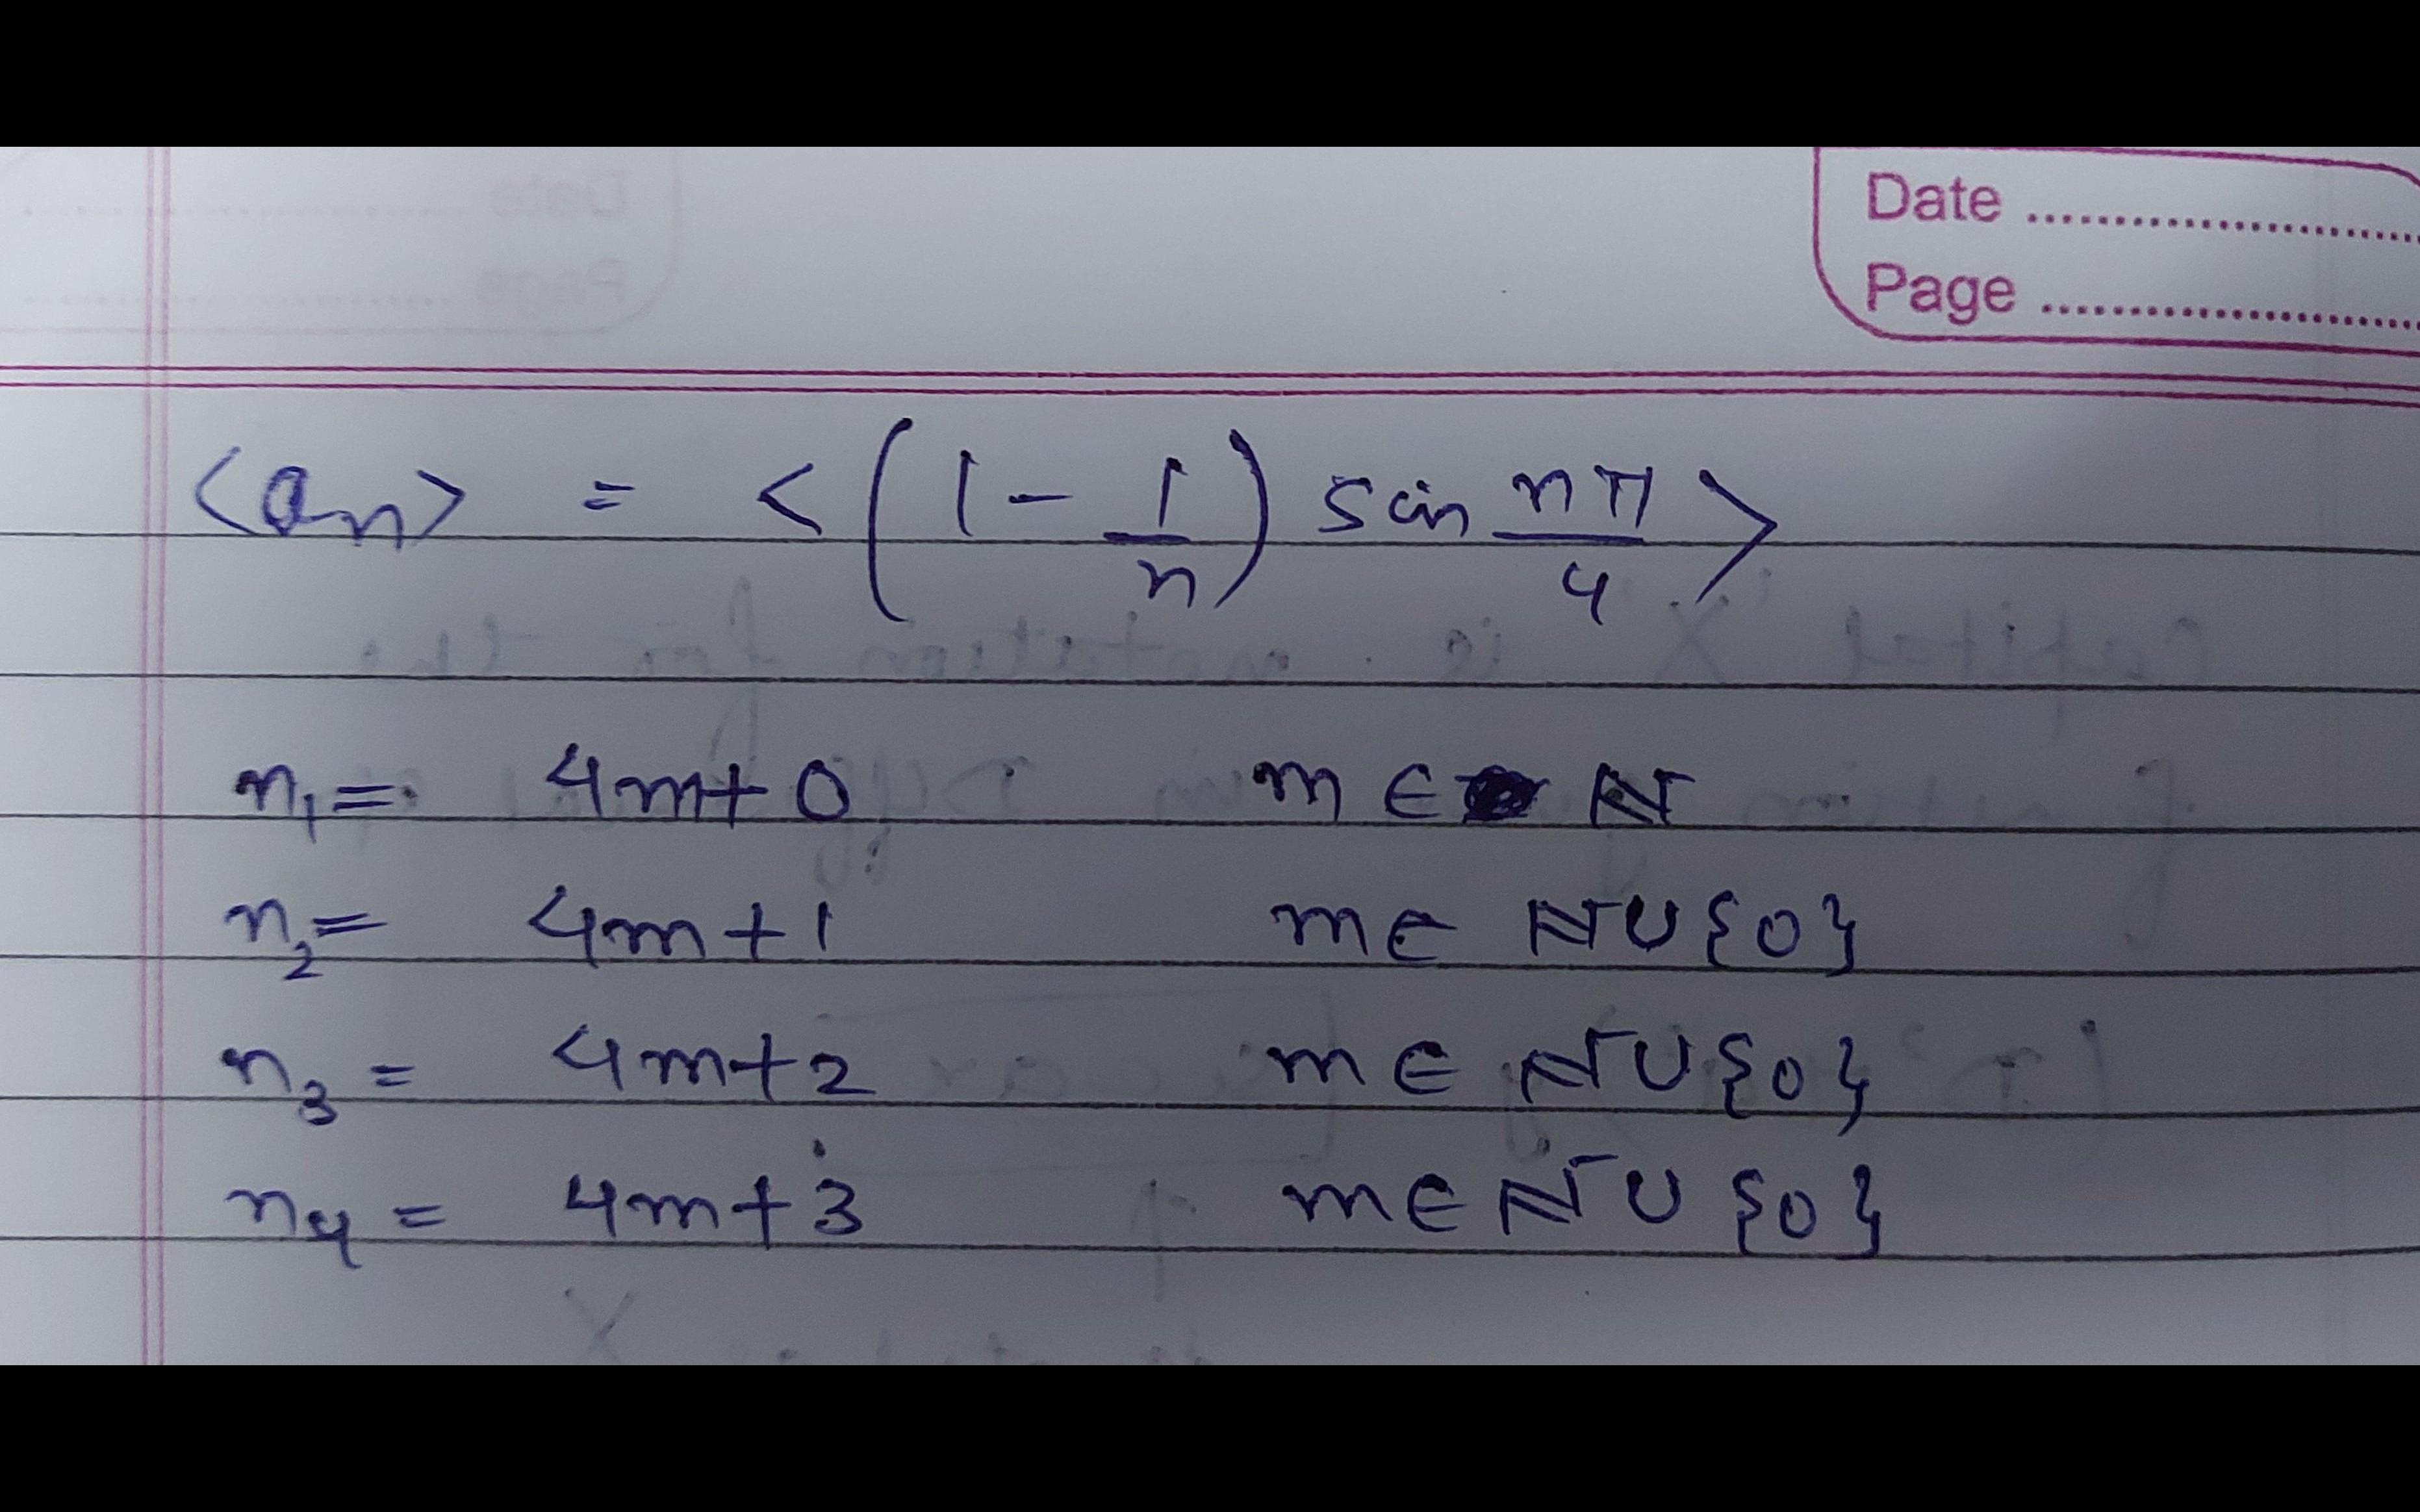 Date ....................
Page ....................
<aₙ> = <(1 - 1/n) sin nπ/4>
n₁ = 4m+0 m ∈ ℕ
n₂ = 4m+1 m ∈ ℕ∪{0}
n₃ = 4m+2 m ∈ ℕ∪{0}
n₄ = 4m+3 m ∈ ℕ∪{0}